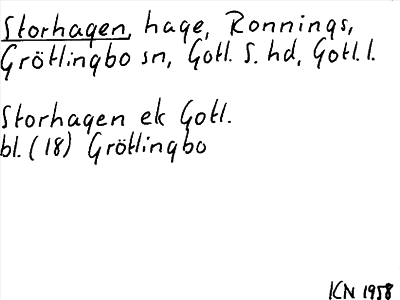 Storhagen, hage, Ronnings,
Grötlingbo sn, Gotl. S. hd, Gotl. l.
Storhagen ek Gotl.
bl. (18) Grötlingbo
ICN 1958